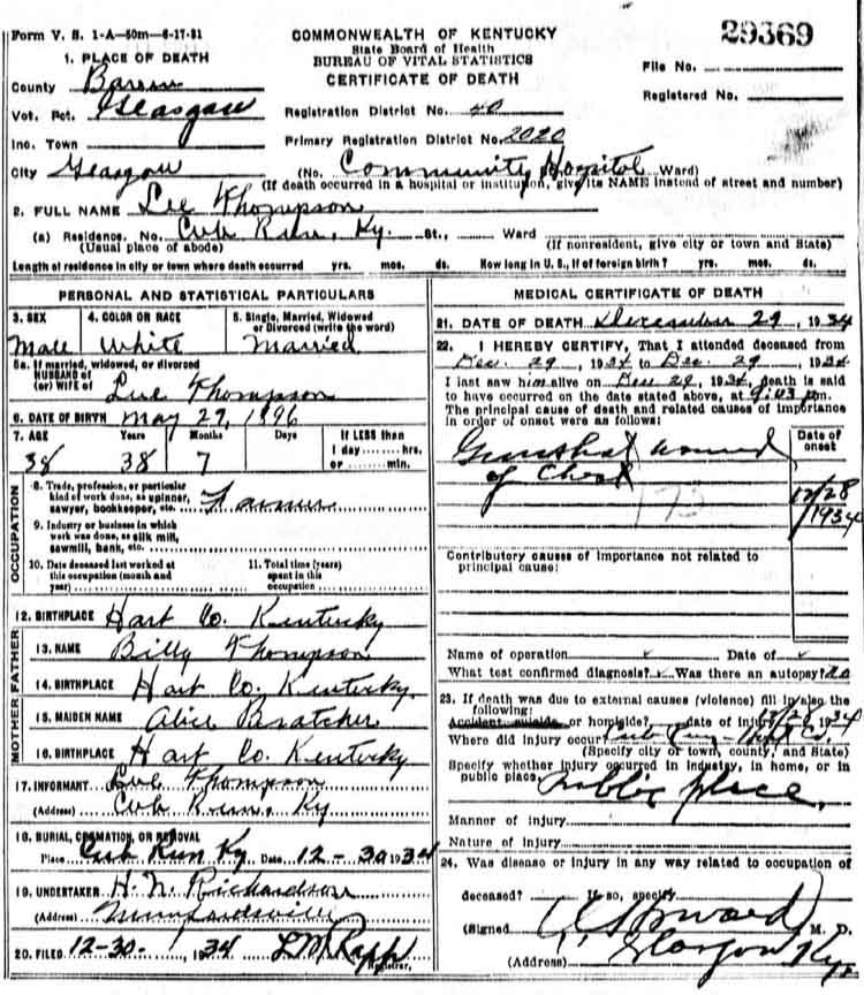 Form V. S. 1-A—50m—6-17-31
COMMONWEALTH OF KENTUCKY
State Board of Health
BUREAU OF VITAL STATISTICS
CERTIFICATE OF DEATH
29369
File No.
Registered No.
1. PLACE OF DEATH
County Barren
Vot. Pct. Glasgow
Registration District No. 40
Inc. Town
Primary Registration District No. 2020
City Glasgow (No. Community Hospital Ward)
(If death occurred in a hospital or institution, give its NAME instead of street and number)
2. FULL NAME Lee Thompson
(a) Residence. No. Cub Run, Ky. St., Ward
(Usual place of abode) (If nonresident, give city or town and State)
Length of residence in city or town where death occurred yrs. mos. ds. How long in U. S., if of foreign birth? yrs. mos. ds.
PERSONAL AND STATISTICAL PARTICULARS
3. SEX 4. COLOR OR RACE 5. Single, Married, Widowed
or Divorced (write the word)
Male White Married
5a. If married, widowed, or divorced
HUSBAND of
(or) WIFE of Lue Thompson
6. DATE OF BIRTH May 27, 1896
7. AGE Years Months Days If LESS than
1 day ........ hrs.
38 38 7 or ........ min.
OCCUPATION
8. Trade, profession, or particular
kind of work done, as spinner,
sawyer, bookkeeper, etc. Farmer
9. Industry or business in which
work was done, as silk mill,
sawmill, bank, etc.
10. Date deceased last worked at
this occupation (month and
year)
11. Total time (years)
spent in this
occupation
12. BIRTHPLACE Hart Co. Kentucky
FATHER
13. NAME Billy Thompson
14. BIRTHPLACE Hart Co. Kentucky.
MOTHER
15. MAIDEN NAME Alice Bratcher
16. BIRTHPLACE Hart Co. Kentucky
17. INFORMANT Lue Thompson
(Address) Cub Run, Ky
18. BURIAL, CREMATION, OR REMOVAL
Place Cub Run Ky Date 12-30 1934
19. UNDERTAKER H. N. Richardson
(Address) Munfordsville
20. FILED 12-30-, 1934 L M Rapp
Registrar.
MEDICAL CERTIFICATE OF DEATH
21. DATE OF DEATH December 29, 1934
22. I HEREBY CERTIFY, That I attended deceased from
Dec. 29, 1934 to Dec. 29, 1934
I last saw him alive on Dec 29, 1934, death is said
to have occurred on the date stated above, at 9:03 pm.
The principal cause of death and related causes of importance
in order of onset were as follows:
Date of
onset
Gunshot wound
of Chest
12/28
1934
173
Contributory causes of importance not related to
principal cause:
Name of operation Date of
What test confirmed diagnosis? Was there an autopsy? No
23. If death was due to external causes (violence) fill in also the
following:
Accident, suicide, or homicide? date of injury 12/28 1934
Where did injury occur? Cub Run - Hart Co.
(Specify city or town, county, and State)
Specify whether injury occurred in industry, in home, or in
public place. Public place.
Manner of injury
Nature of injury
24. Was disease or injury in any way related to occupation of
deceased? If so, specify
(Signed Howard M. D.
(Address) Glasgow Ky.